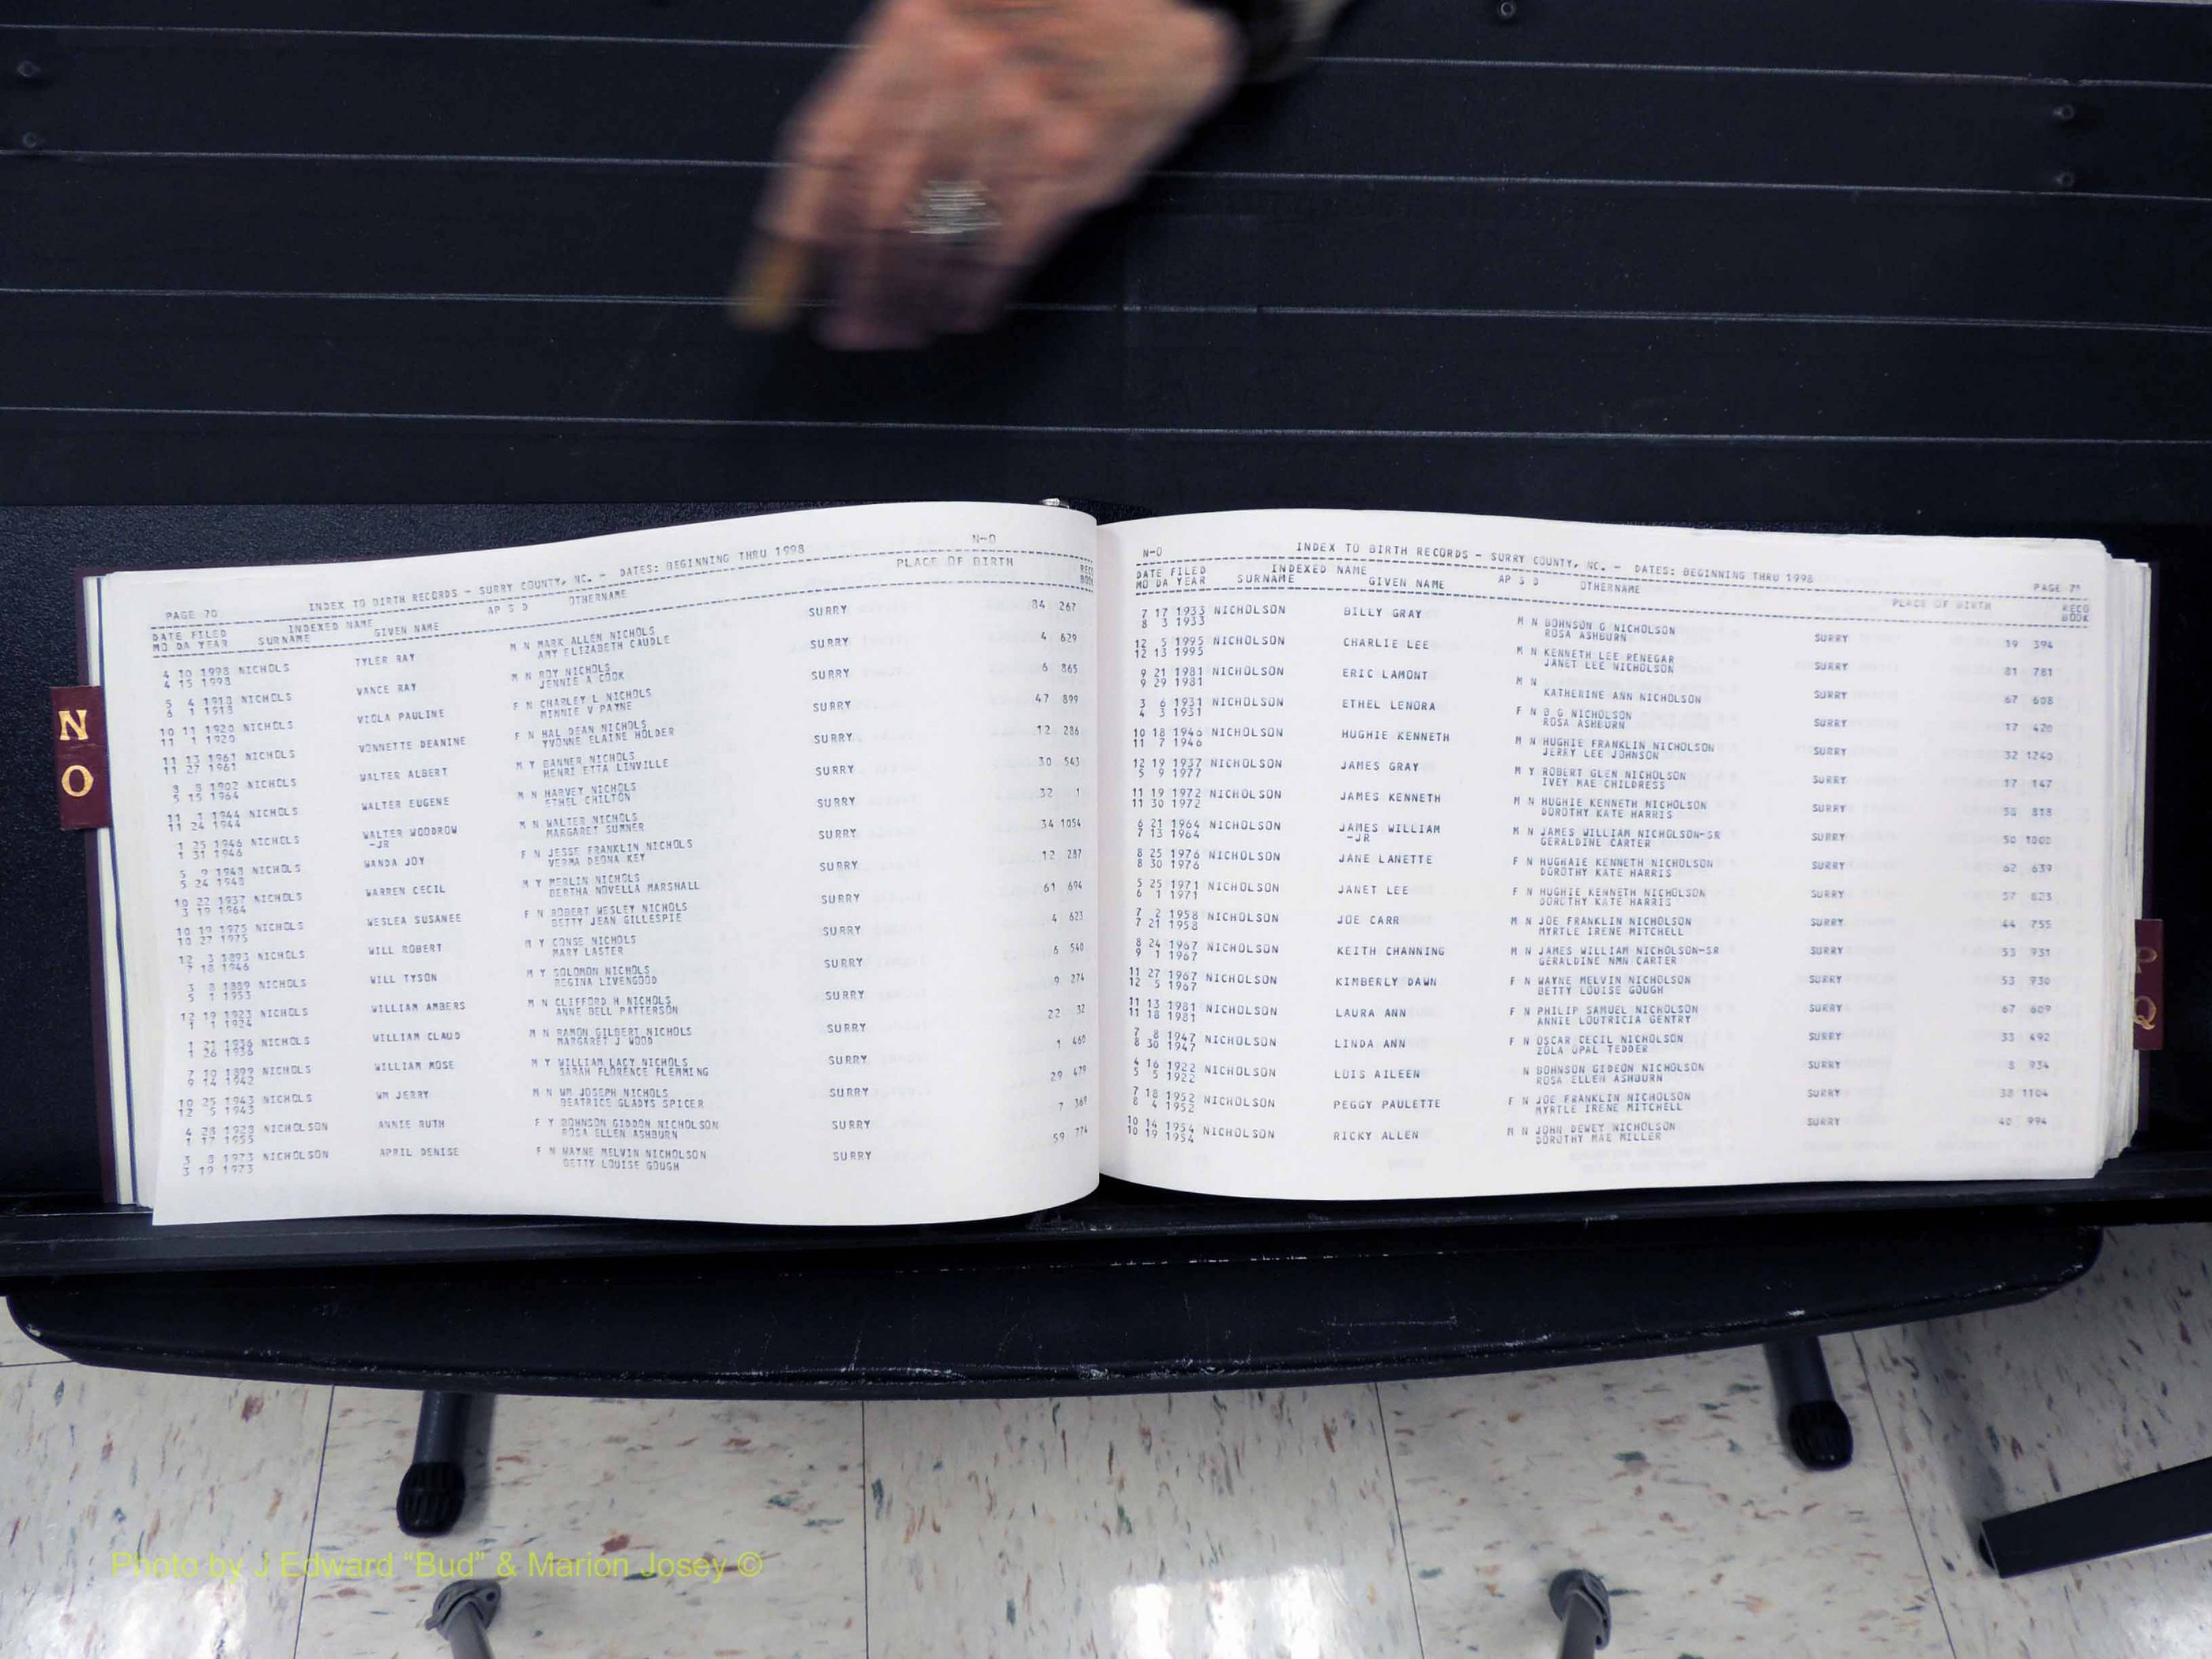 N
O
N-O
PAGE 70 INDEX TO BIRTH RECORDS - SURRY COUNTY, NC. - DATES: BEGINNING THRU 1998
DATE FILED INDEXED NAME AP S D OTHERNAME PLACE OF BIRTH
MO DA YEAR SURNAME GIVEN NAME
4 10 1998 NICHOLS TYLER RAY M N MARK ALLEN NICHOLS SURRY 84 267
4 15 1998 AMY ELIZABETH CAUDLE
5 4 1918 NICHOLS VANCE RAY M N ROY NICHOLS SURRY 4 629
6 1 1918 JENNIE A COOK
10 11 1920 NICHOLS VIOLA PAULINE F N CHARLEY L NICHOLS SURRY 6 865
11 1 1920 MINNIE V PAYNE
11 13 1961 NICHOLS VONNETTE DEANINE F N HAL DEAN NICHOLS SURRY 47 899
11 27 1961 YVONNE ELAINE HOLDER
8 8 1902 NICHOLS WALTER ALBERT M Y BANNER NICHOLS SURRY 12 286
5 15 1964 HENRI ETTA LINVILLE
11 1 1944 NICHOLS WALTER EUGENE M N HARVEY NICHOLS SURRY 30 543
11 24 1944 ETHEL CHILTON
1 25 1946 NICHOLS WALTER WOODROW M N WALTER NICHOLS SURRY 32 1
1 31 1946 -JR MARGARET SUMNER
5 9 1948 NICHOLS WANDA JOY F N JESSE FRANKLIN NICHOLS SURRY 34 1054
5 24 1948 VERMA DEONA KEY
10 22 1937 NICHOLS WARREN CECIL M Y MERLIN NICHOLS SURRY 12 287
3 19 1964 BERTHA NOVELLA MARSHALL
10 19 1975 NICHOLS WESLEA SUSANEE F N ROBERT WESLEY NICHOLS SURRY 61 694
10 27 1975 BETTY JEAN GILLESPIE
12 3 1893 NICHOLS WILL ROBERT M Y CONSE NICHOLS SURRY 4 623
7 18 1946 MARY LASTER
3 8 1889 NICHOLS WILL TYSON M Y SOLOMON NICHOLS SURRY 6 540
5 1 1953 REGINA LIVENGOOD
12 19 1923 NICHOLS WILLIAM AMBERS M N CLIFFORD H NICHOLS SURRY 9 274
1 1 1924 ANNE BELL PATTERSON
1 21 1936 NICHOLS WILLIAM CLAUD M N RAMON GILBERT NICHOLS SURRY 22 32
1 26 1936 MARGARET J WOOD
7 10 1899 NICHOLS WILLIAM MOSE M Y WILLIAM LACY NICHOLS SURRY 1 460
9 14 1942 SARAH FLORENCE FLEMMING
10 25 1943 NICHOLS WM JERRY M N WM JOSEPH NICHOLS SURRY 29 479
12 5 1943 BEATRICE GLADYS SPICER
4 28 1928 NICHOLSON ANNIE RUTH F Y BOHNSON GIDDON NICHOLSON SURRY 7 369
1 17 1955 ROSA ELLEN ASHBURN
3 8 1973 NICHOLSON APRIL DENISE F N WAYNE MELVIN NICHOLSON SURRY 59 774
3 19 1973 BETTY LOUISE GOUGH
N-O INDEX TO BIRTH RECORDS - SURRY COUNTY, NC. - DATES: BEGINNING THRU 1998 PAGE
DATE FILED INDEXED NAME AP S D OTHERNAME PLACE OF BIRTH RECO
MO DA YEAR SURNAME GIVEN NAME BOOK
7 17 1933 NICHOLSON BILLY GRAY M N BOHNSON G NICHOLSON SURRY 19 394
8 3 1933 ROSA ASHBURN
12 5 1995 NICHOLSON CHARLIE LEE M N KENNETH LEE RENEGAR SURRY 81 781
12 13 1995 JANET LEE NICHOLSON
9 21 1981 NICHOLSON ERIC LAMONT M N SURRY 67 608
9 29 1981 KATHERINE ANN NICHOLSON
3 6 1931 NICHOLSON ETHEL LENORA F N B G NICHOLSON SURRY 17 420
4 3 1931 ROSA ASHBURN
10 18 1946 NICHOLSON HUGHIE KENNETH M N HUGHIE FRANKLIN NICHOLSON SURRY 32 1240
11 7 1946 JERRY LEE JOHNSON
12 19 1937 NICHOLSON JAMES GRAY M Y ROBERT GLEN NICHOLSON SURRY 17 147
5 9 1977 IVEY MAE CHILDRESS
11 19 1972 NICHOLSON JAMES KENNETH M N HUGHIE KENNETH NICHOLSON SURRY 58 818
11 30 1972 DOROTHY KATE HARRIS
6 21 1964 NICHOLSON JAMES WILLIAM M N JAMES WILLIAM NICHOLSON-SR SURRY 50 1000
7 13 1964 -JR GERALDINE CARTER
8 25 1976 NICHOLSON JANE LANETTE F N HUGHAIE KENNETH NICHOLSON SURRY 62 639
8 30 1976 DOROTHY KATE HARRIS
5 25 1971 NICHOLSON JANET LEE F N HUGHIE KENNETH NICHOLSON SURRY 57 823
6 1 1971 DOROTHY KATE HARRIS
7 2 1958 NICHOLSON JOE CARR M N JOE FRANKLIN NICHOLSON SURRY 44 755
7 21 1958 MYRTLE IRENE MITCHELL
8 24 1967 NICHOLSON KEITH CHANNING M N JAMES WILLIAM NICHOLSON-SR SURRY 53 931
9 1 1967 GERALDINE NMN CARTER
11 27 1967 NICHOLSON KIMBERLY DAWN F N WAYNE MELVIN NICHOLSON SURRY 53 930
12 5 1967 BETTY LOUISE GOUGH
11 13 1981 NICHOLSON LAURA ANN F N PHILIP SAMUEL NICHOLSON SURRY 67 609
11 18 1981 ANNIE LOUTRICIA GENTRY
7 8 1947 NICHOLSON LINDA ANN F N OSCAR CECIL NICHOLSON SURRY 33 492
8 30 1947 ZOLA OPAL TEDDER
4 16 1922 NICHOLSON LOIS AILEEN N BOHNSON GIDEON NICHOLSON SURRY 8 934
5 5 1922 ROSA ELLEN ASHBURN
7 18 1952 NICHOLSON PEGGY PAULETTE F N JOE FRANKLIN NICHOLSON SURRY 38 1104
8 4 1952 MYRTLE IRENE MITCHELL
10 14 1954 NICHOLSON RICKY ALLEN M N JOHN DEWEY NICHOLSON SURRY 40 994
10 19 1954 DOROTHY MAE MILLER
Photo by J Edward “Bud” & Marion Josey ©